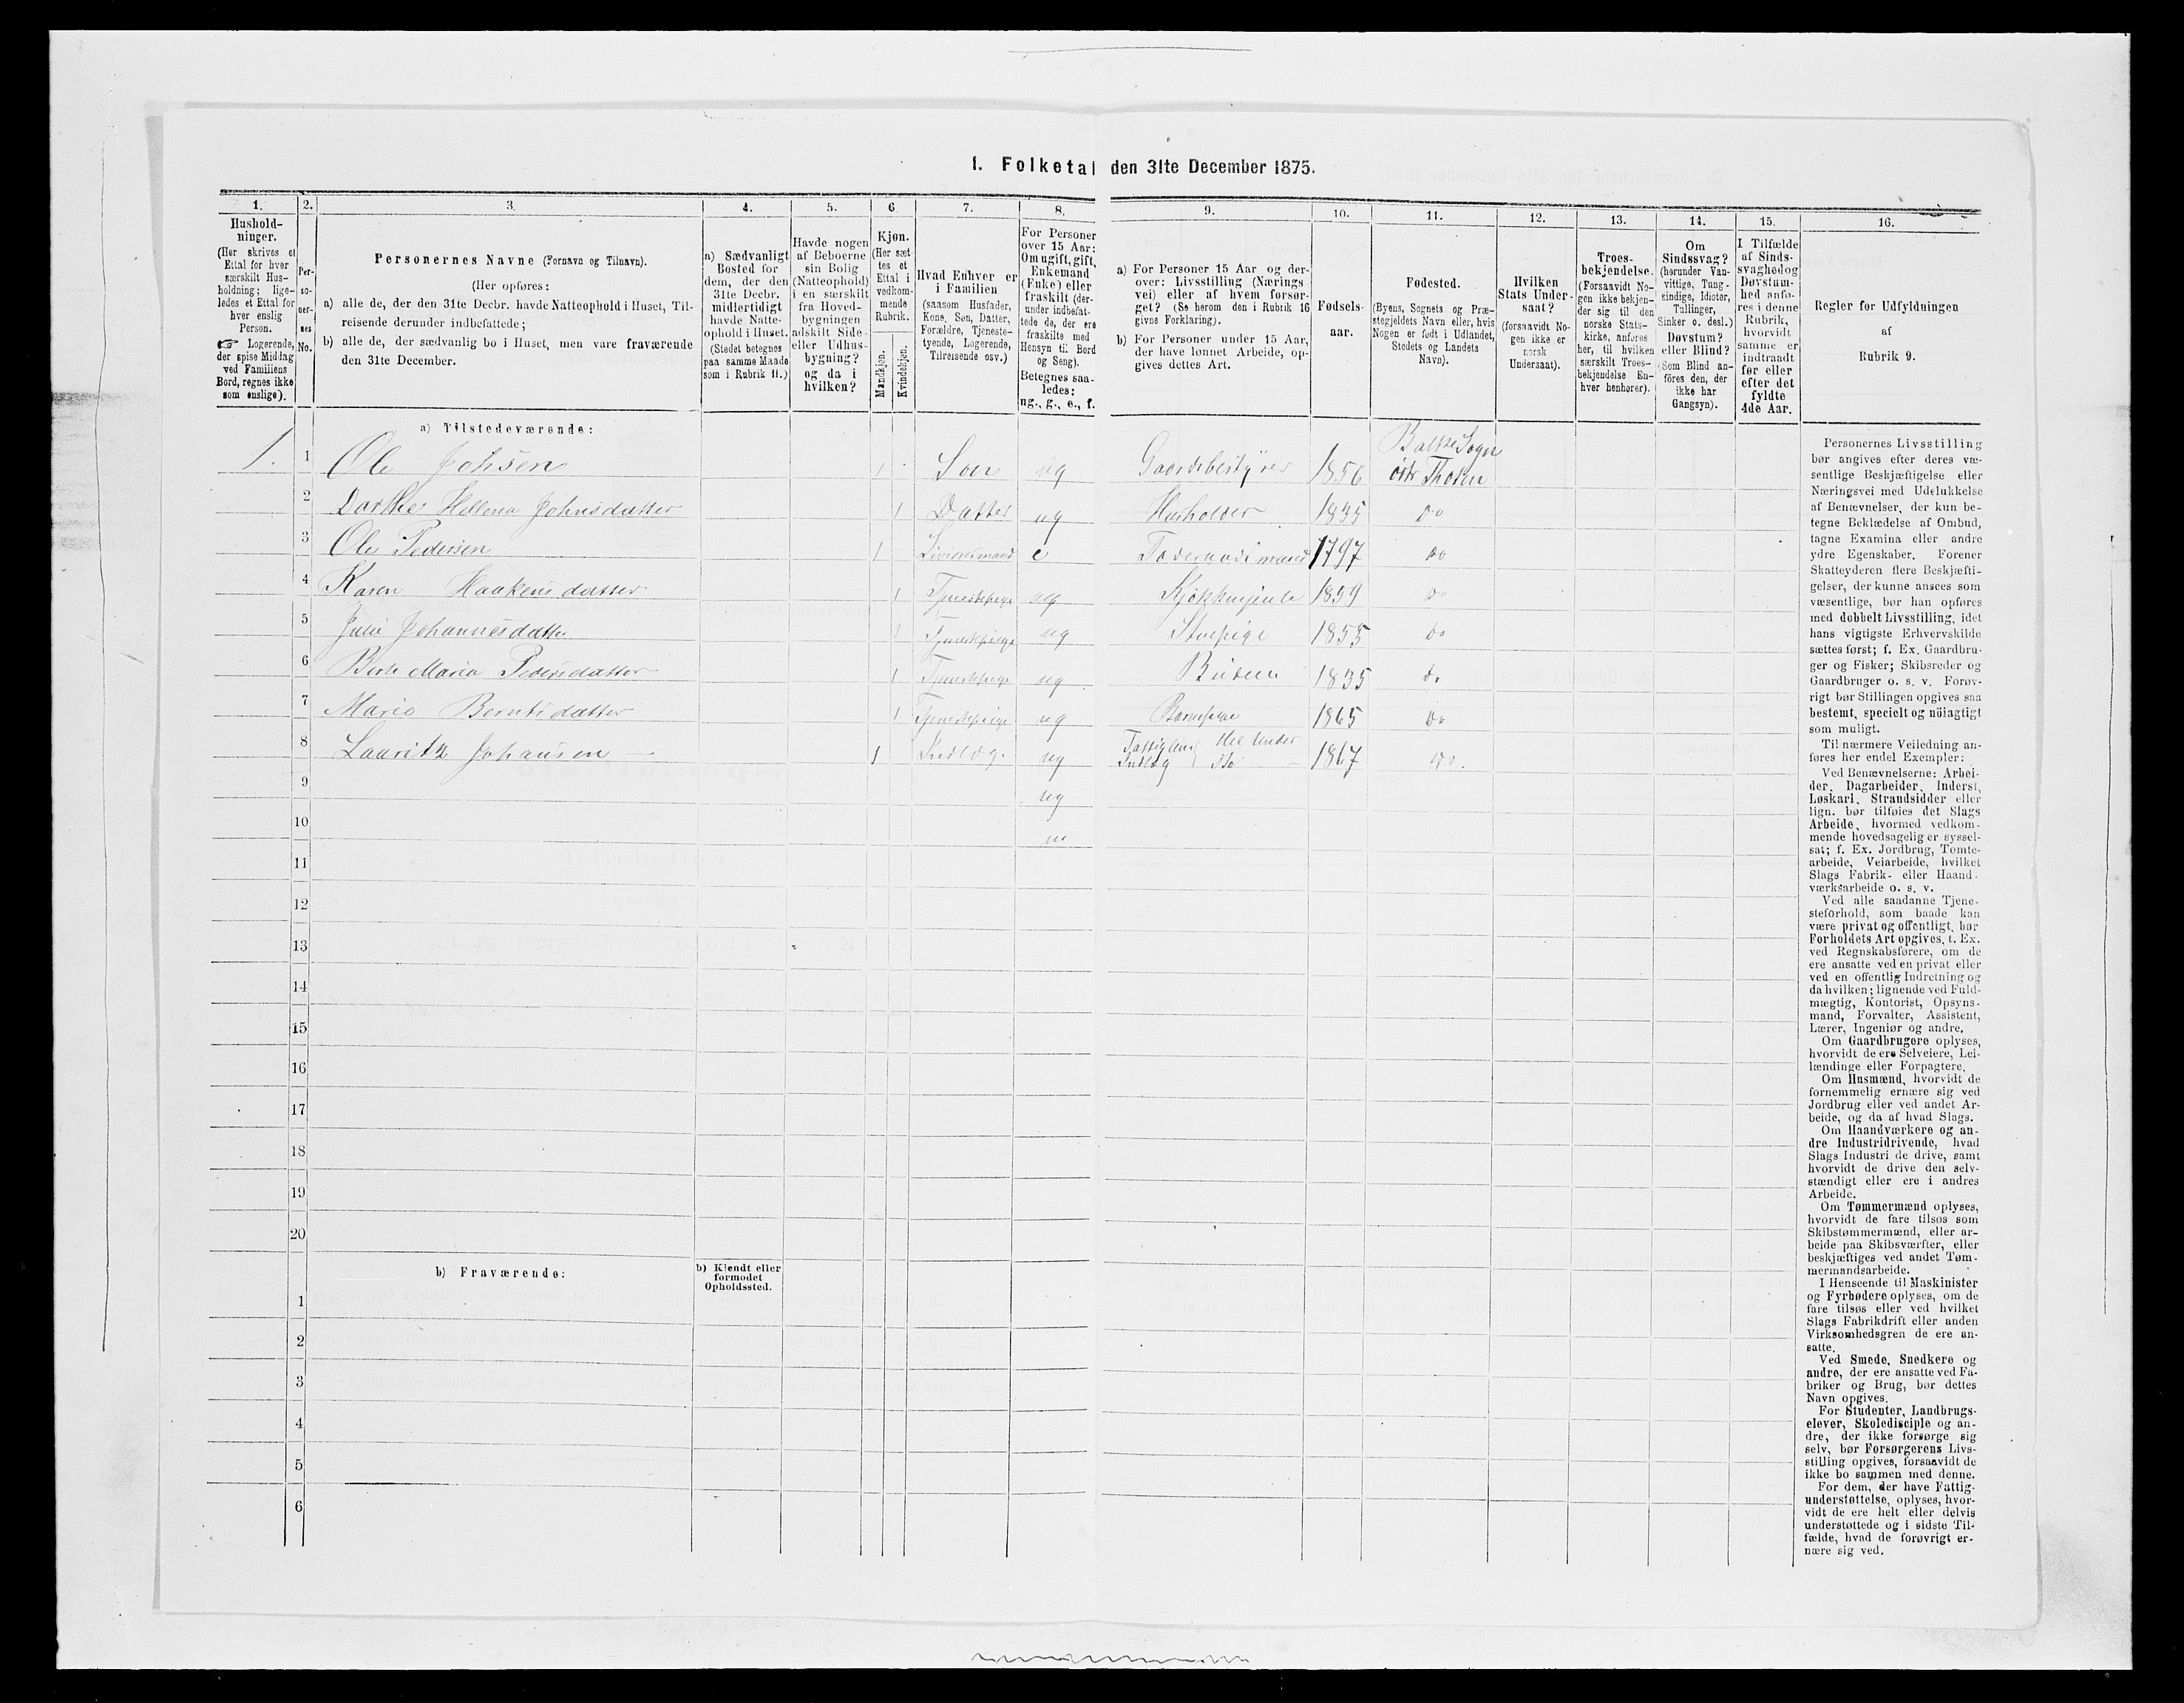 1. Folketal den 31te December 1875.
1.
2.
3.
4.
5.
6.
7.
8.
9.
10.
11.
12.
13.
14.
15.
16.
Hushold-
ninger.
(Her skrives et
Ettal for hver
særskilt Hus-
holdning; lige-
ledes et Ettal for
hver enslig
Person.
☞ Logerende,
der spise Middag
ved Familiens
Bord, regnes ikke
som enslige).
Per-
so-
ner-
nes
No.
Personernes Navne (Fornavn og Tilnavn).
(Her opføres:
a) alle de, der den 31te Decbr. havde Natteophold i Huset, Til-
reisende derunder indbefattede;
b) alle de, der sædvanlig bo i Huset, men vare fraværende
den 31te December.
a) Sædvanligt
Bosted for
dem, der den
31te Decbr.
midlertidigt
havde Natte-
ophold i Huset.
(Stedet betegnes
paa samme Maade
som i Rubrik 11.)
Havde nogen
af Beboerne
sin Bolig
(Natteophold)
i en særskilt
fra Hoved-
bygningen
adskilt Side-
eller Udhus-
bygning?
og da i
hvilken?
Kjøn.
(Her sæt-
tes et
Ettal i
vedkom-
mende
Rubrik.
Mandkjøn.
Kvindekjøn.
Hvad Enhver er
i Familien
(saasom Husfader,
Kone, Søn, Datter,
Forældre, Tjeneste-
tyende, Logerende,
Tilreisende osv.)
For Personer
over 15 Aar:
Om ugift, gift,
Enkemand
(Enke) eller
fraskilt (der-
under indbefat-
tede de, der ere
fraskilte med
Hensyn til Bord
og Seng).
Betegnes saa-
ledes:
ug., g., e., f.
a) For Personer 15 Aar og der-
over: Livsstilling (Nærings
vei) eller af hvem forsør-
get? (Se herom den i Rubrik 16
givne Forklaring).
b) For Personer under 15 Aar,
der have lønnet Arbeide, op-
gives dettes Art.
Fødsels-
aar.
Fødested.
(Byens, Sognets og Præ-
stegjeldets Navn eller, hvis
Nogen er født i Udlandet,
Stedets og Landets
Navn).
Hvilken
Stats Under-
saat?
(forsaavidt No-
gen ikke er
norsk
Undersaat).
Troes-
bekjendelse.
(Forsaavidt No-
gen ikke bekjen-
der sig til den
norske Stats-
kirke, anføres
her, til hvilken
særskilt Troes-
bekjendelse En-
hver henhører).
Om
Sindssvag?
(herunder Van-
vittige, Tung-
sindige, Idioter,
Tullinger,
Sinker o. desl.)
Døvstum?
eller Blind?
(Som Blind an-
føres den, der
ikke har
Gangsyn).
I Tilfælde
af Sinds-
svaghed og
Døvstum-
hed anfø-
res i denne
Rubrik,
hvorvidt
samme er
indtraadt
før eller
efter det
fyldte
4de Aar.
Regler for Udfyldningen
af
Rubrik 9.
a) Tilstedeværende:
1. 1 Ole Johsen 1 Søn ug Gaardsbestyrer 1856 Balke Sogn
østr Thoten
2 Dorthe Hellena Johnsdatter 1 Datter ug Husholder 1835 do
3 Ole Pedersen 1 e Foderaadsmand 1797 do
4 Karen Haakensdatter 1 Tjenestepige ug 1859 do
5 Julie Johannesdatter 1 Tjenestepige ug Stuepige 1855 do
6 Berte Maria Pedersdatter 1 Tjenestepige ug Budeie 1835 do
7 Marie Berntsdatter 1 Tjenestepige ug Barnepige 1865 do
8 Lauritz Johansen 1 Indlæg. ug 1867 do.
9 ug
10
11
12
13
14
15
16
17
18
19
20
b) Fraværende:
b) Kjendt eller
formodet
Opholdssted.
1
2
3
4
5
6
Personernes Livsstilling
bør angives efter deres væ-
sentlige Beskjæftigelse eller
Næringsvei med Udelukkelse
af Benævnelser, der kun be-
tegne Beklædelse af Ombud,
tagne Examina eller andre
ydre Egenskaber. Forener
Skatteyderen flere Beskjæfti-
gelser, der kunne ansees som
væsentlige, bør han opføres
med dobbelt Livsstilling, idet
hans vigtigste Erhvervskilde
sættes først; f. Ex. Gaardbru-
ger og Fisker; Skibsreder og
Gaardbruger o. s. v. Forøv-
rigt bør Stillingen opgives saa
bestemt, specielt og nöiagtigt
som muligt.
Til nærmere Veiledning an-
føres her endel Exempler:
Ved Benævnelserne: Arbei-
der, Dagarbeider, Inderst,
Løskarl, Strandsidder eller
lign. bør tilføies det Slags
Arbeide, hvormed vedkom-
mende hovedsagelig er syssel-
sat; f. Ex. Jordbrug, Tomte-
arbeide, Veiarbeide, hvilket
Slags Fabrik- eller Haand-
værksarbeide o. s. v.
Ved alle saadanne Tjene-
steforhold, som baade kan
være privat og offentligt, bør
Forholdets Art opgives, t. Ex.
ved Regnskabsførere, om de
ere ansatte ved en privat eller
ved en offentlig Indretning og
da hvilken; lignende ved Fuld-
mægtig, Kontorist, Opsyns-
mand, Forvalter, Assistent,
Lærer, Ingeniør og andre.
Om Gaardbrugere oplyses,
hvorvidt de ere Selveiere, Lei-
lændinge eller Forpagtere.
Om Husmænd, hvorvidt de
fornemmelig ernære sig ved
Jordbrug eller ved andet Ar-
beide, og da af hvad Slags.
Om Haandværkere og an-
dre Industridrivende, hvad
Slags Industri de drive, samt
hvorvidt de drive den selv-
stændigt eller ere i andres
Arbeide.
Om Tømmermænd oplyses,
hvorvidt de fare tilsøs som
Skibstømmermænd, eller ar-
beide paa Skibsværfter, eller
beskjæftiges ved andet Tøm-
mermandsarbeide.
I Henseende til Maskinister
og Fyrbødere oplyses, om de
fare tilsøs eller ved hvilket
Slags Fabrikdrift eller anden
Virksomhedsgren de ere an-
satte.
Ved Smede, Snedkere og
andre, der ere ansatte ved Fa-
briker og Brug, bør dettes
Navn opgives.
For Studenter, Landbrugs-
elever, Skoledisciple og an-
dre, der ikke forsørge sig
selv, bør Forsørgerens Livs-
stilling opgives, forsaavidt de
ikke bo sammen med denne.
For dem, der have Fattig-
understøttelse, oplyses, hvor-
vidt de ere helt eller delvis
understøttede og i sidste Til-
fælde, hvad de forøvrigt er-
nære sig ved.